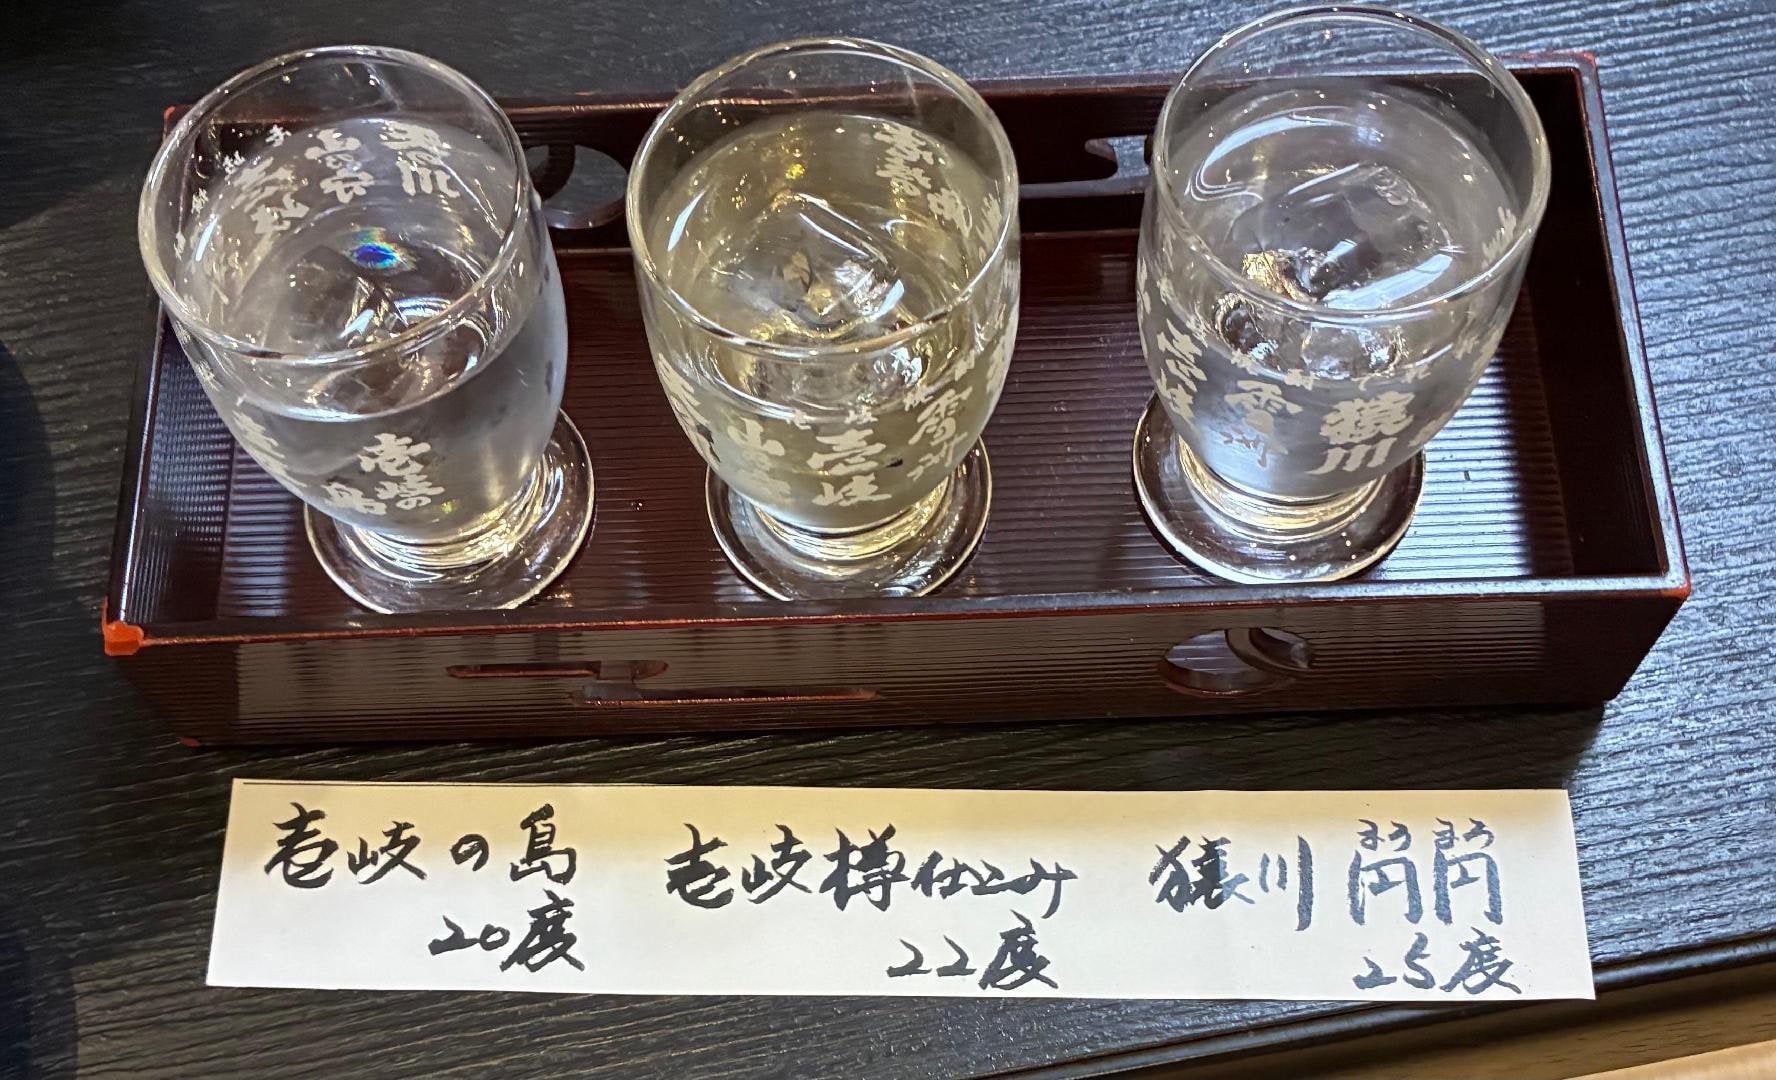 壱岐の
島
壱岐
雪洲
雪洲
猿川
壱岐の島
20度
壱岐樽仕込み
22度
まろ まろ
猿川 円円
25度